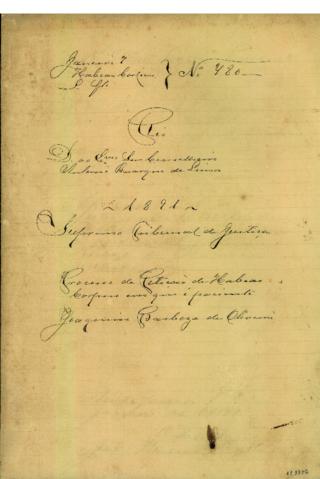 Janeiro 7
Habeas Corpus } Nº 480
Rio
D. ao Exmo Snr Conselheiro
Antonio Buarque de Lima
1891
Supremo Tribunal de Justiça
Processo de Petição de Habeas
Corpus em que é paciente
Joaquim Barboza de Oliveira